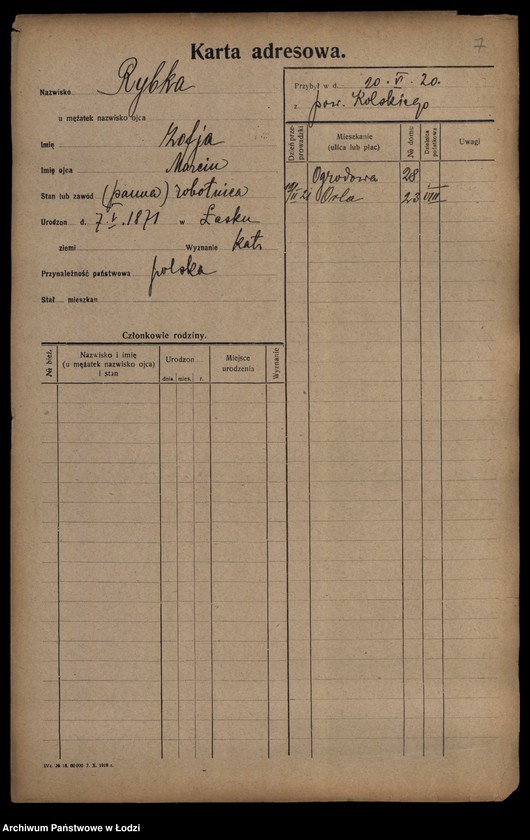 7
Karta adresowa.
Nazwisko Rybka
u mężatek nazwisko ojca
Imię Zofja
Imię ojca Marcin
Stan lub zawód (panna) robotnica
Urodzon d. 7 V 1871 w Łasku
ziemi Wyznanie kat.
Przynależność państwowa polska
Stał mieszkan
Przybył w d. 20. VI. 20.
z pow. Kolskiego
Dzień przeprowadzki
Mieszkanie (ulica lub plac)
№ domu
Dzielnica podatkowa
Uwagi
Ogrodowa 28
II 21 Orla 23 VIII
Członkowie rodziny.
№ bież.
Nazwisko i imię
(u mężatek nazwisko ojca)
i stan
Urodzon
dnia mies. r.
Miejsce
urodzenia
Wyznanie
Archiwum Państwowe w Łodzi